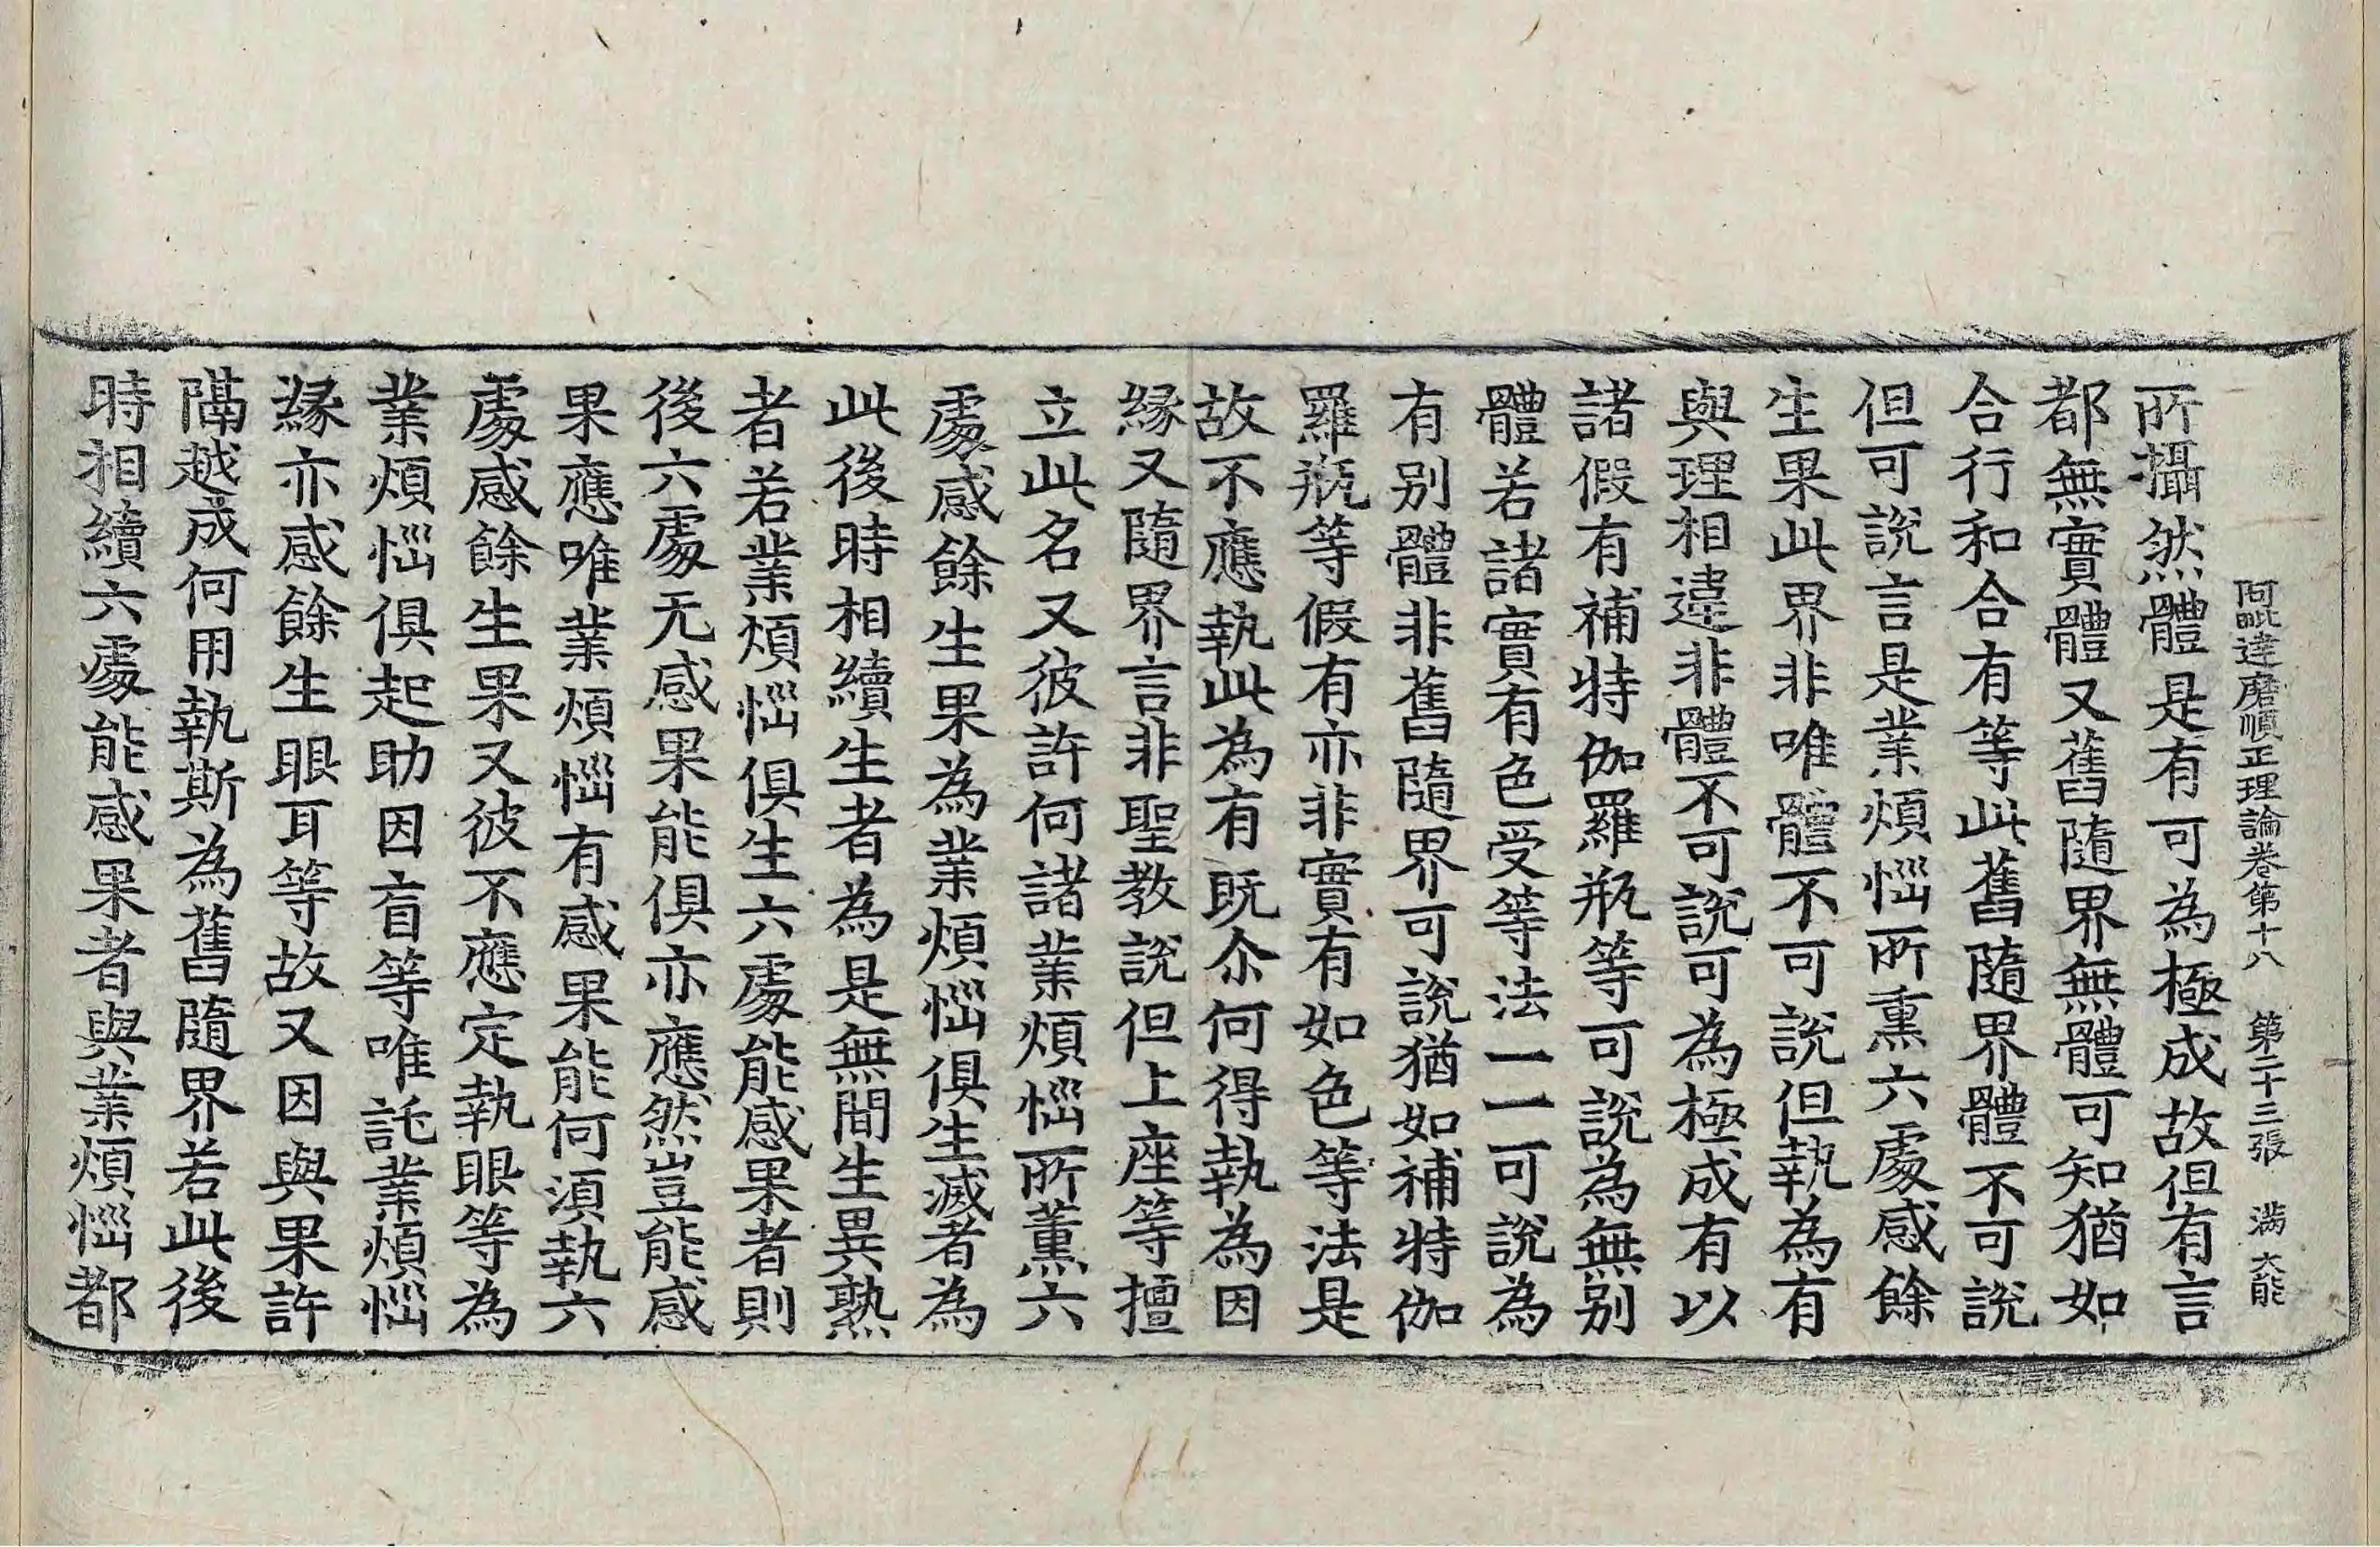 阿毗達磨順正理論卷第十八　第二十三張　滿　大能
所攝然體是有可為極成故但有言
都無實體又舊隨界無體可知猶如
合行和合有等此舊隨界體不可說
但可說言是業煩惱所熏六處感餘
生果此界非唯體不可說但執為有
與理相違非體不可說可為極成有以
諸假有補特伽羅瓶等可說為無別
體若諸實有色受等法一一可說為
有别體非舊隨界可說猶如補特伽
羅瓶等假有亦非實有如色等法是
故不應執此為有既尒何得執為因
緣又隨界言非聖教說但上座等擅
立此名又彼許何諸業煩惱所薰六
處感餘生果為業煩惱俱生滅者為
此後時相續生者為是無間生異熟
者若業煩惱俱生六處能感果者則
後六處无感果能俱亦應然豈能感
果應唯業煩惱有感果能何須執六
處感餘生果又彼不應定執眼等為
業煩惱俱起助因盲等唯託業煩惱
緣亦感餘生眼耳等故又因與果許
隔越成何用執斯為舊隨界若此後
時相續六處能感果者與業煩惱都